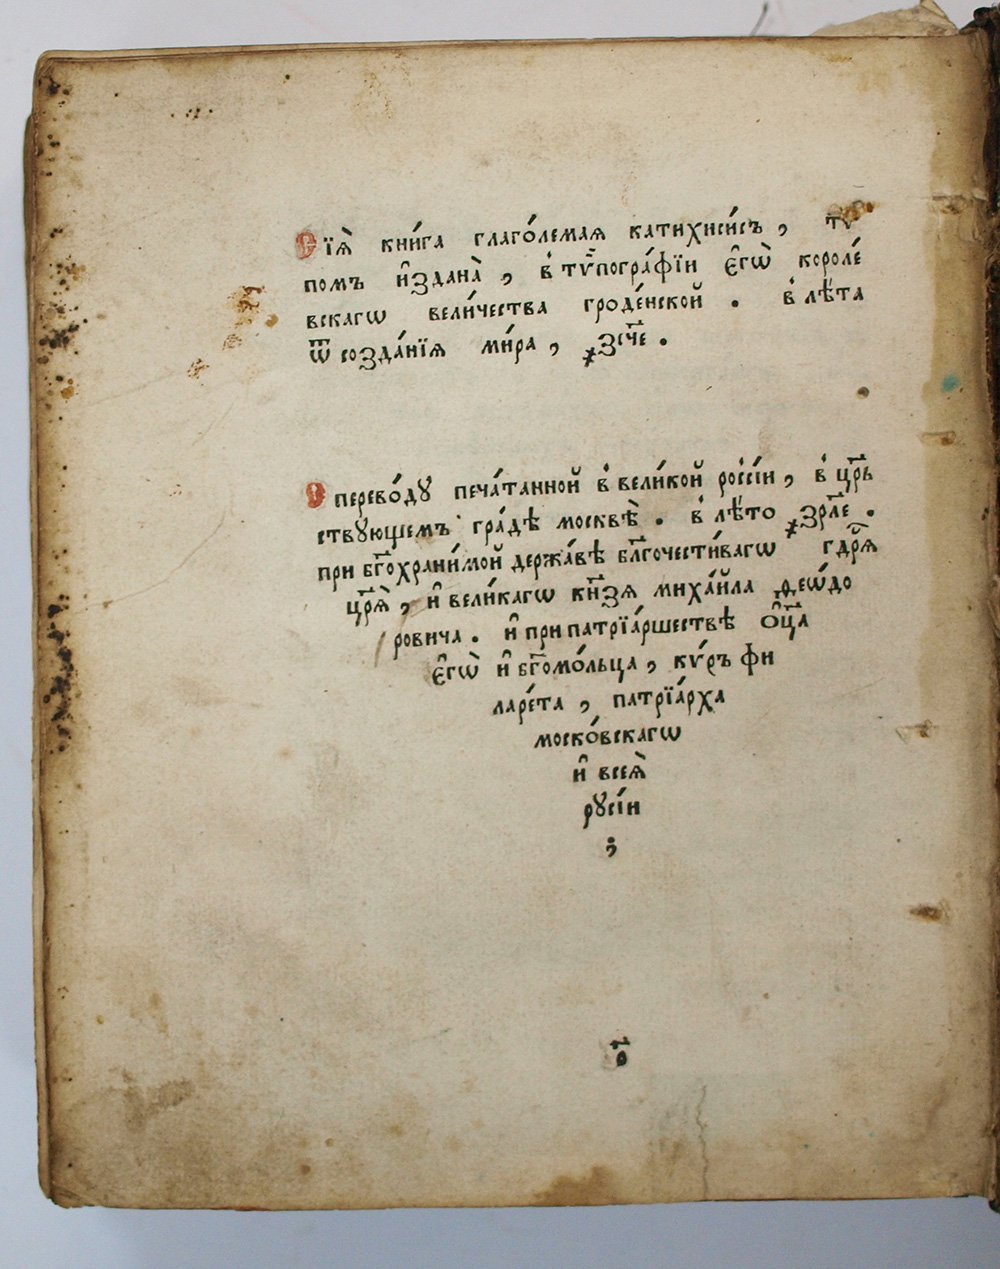 Сїѧ̀ кни́га глаго́лемая катихи́сисъ, тѵ
помъ и҆́здана̀, в̾ тѵ̈погра́фїи є҆гѡ̀ короле́
вскагѡ вели́чества гроде́нской. в̾ лѣ̈та
ѿ созда́нїѧ ми́ра, ҂зсч҃е.
С перево́ду печа́танной в̾ вели́кой рос̾сі́и, в̾ цр҃ь
ствꙋющемъ гра́дѣ москвѣ̀. в̾ лѣ̈то ҂зрл҃е.
при бг҃охрани́мой держа́вѣ бл҃гочести́вагѡ гд҃рѧ
цр҃ѧ̀, и҆ вели́кагѡ кн҃зѧ миха́йла ѳеѡ́до
ровича. и҆ при патрїа́ршествѣ ѻ҆ц҃а
є҆гѡ̀ и҆ бг҃омо́льца, кѵ́ръ фи
ларе́та, патрїа́рха
моско́вскагѡ
и҆ всеѧ̀
рꙋсі́и
;
о҃